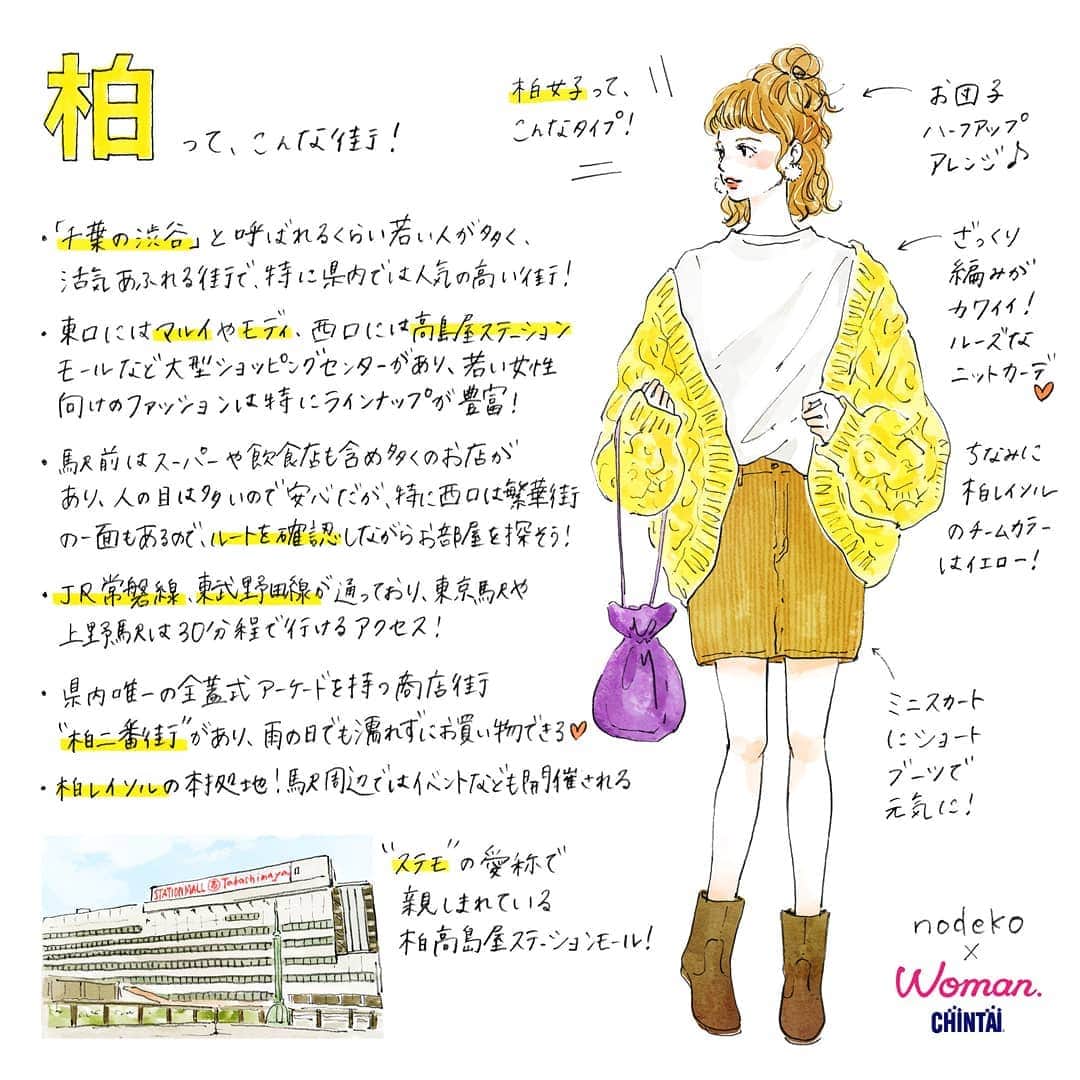 柏
って、こんな街！
・「千葉の渋谷」と呼ばれるくらい若い人が多く、
活気あふれる街で、特に県内では人気の高い街！
・東口にはマルイやモディ、西口には高島屋ステーション
モールなど大型ショッピングセンターがあり、若い女性
向けのファッションは特にラインナップが豊富！
・駅前はスーパーや飲食店も含め多くのお店が
あり、人の目は多いので安心だが、特に西口は繁華街
の一面もあるので、ルートを確認しながらお部屋を探そう！
・JR常磐線、東武野田線が通っており、東京駅や
上野駅は30分程で行けるアクセス！
・県内唯一の全蓋式アーケードを持つ商店街
"柏二番街"があり、雨の日でも濡れずにお買い物できる
・柏レイソルの本拠地！駅周辺ではイベントなども開催される
STATION MALL Takashimaya
"ステモ"の愛称で
親しまれている
柏高島屋ステーションモール！
柏女子って、
こんなタイプ！
お団子
ハーフアップ
アレンジ♪
ざっくり
編みが
カワイイ！
ルーズな
ニットカーデ
ちなみに
柏レイソル
のチームカラー
はイエロー！
ミニスカート
にショート
ブーツで
元気に！
nodeko
×
Woman.
CHINTAI